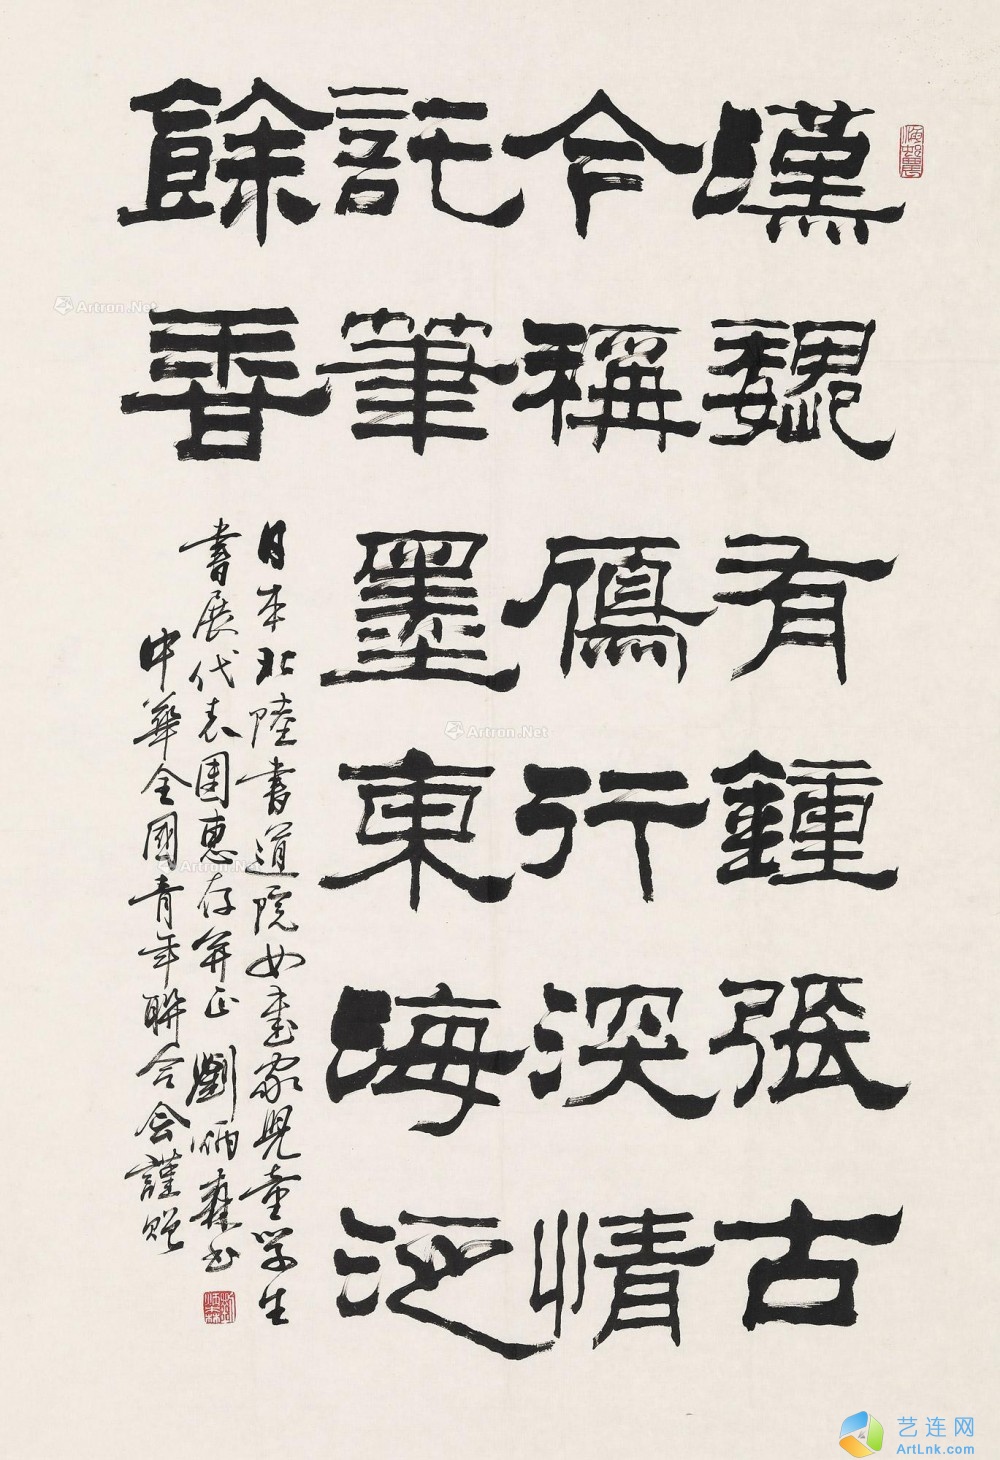 嘆魏有鍾張古
今稱鴈行深情
託筆墨東海泛
餘香
日本北陸書道院女書家兒童学生
書展代表團惠存并正 劉炳森书
中華全國青年聯合会謹贈
劉炳森
Artron.Net
Artron.Net
Artron.Net
艺连网
ArtLnk.com